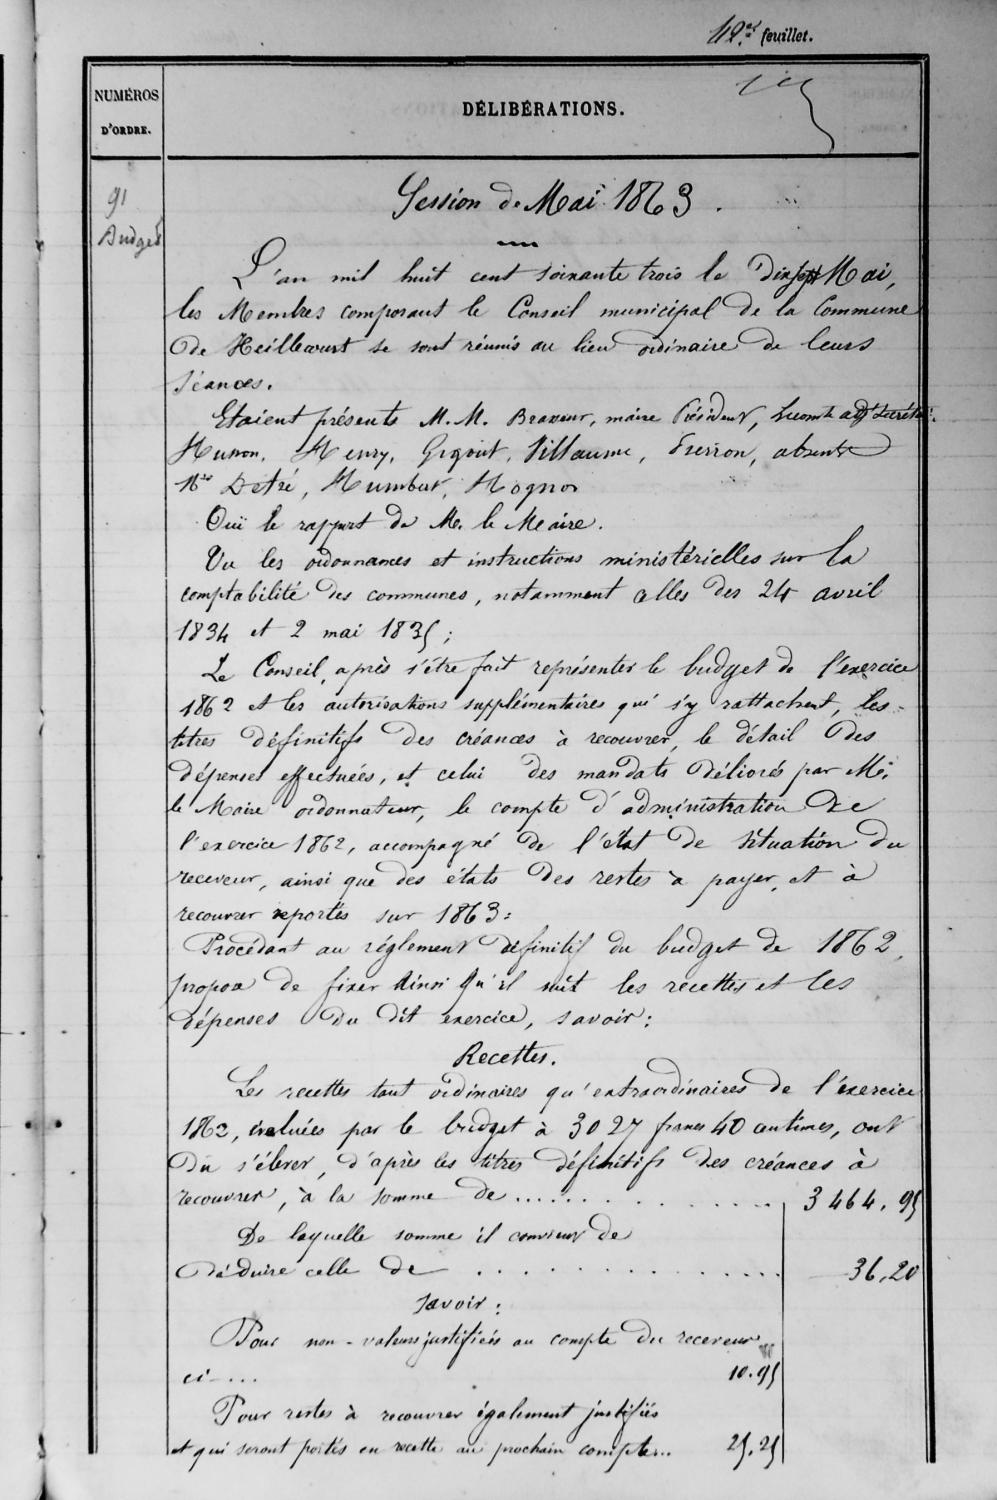 42.e feuillet.
NUMÉROS
D'ORDRE.
DÉLIBÉRATIONS.
91
Budget
Session de Mai 1863.
L'an mil huit cent soixante trois le Dix sept Mai,
les Membres composant le Conseil municipal de la Commune
de Heillecourt se sont réunis au lieu ordinaire de leurs
séances.
Etaient présents M. M. Braveur, maire Président, Lecomte adjt
Husson, Henry, Grgout, Villaume, Pierron, absents
Detré, Humbert, Hognon
Oui le rapport de M. le Maire.
Vu les ordonnances et instructions ministérielles sur la
comptabilité des communes, notamment celles des 24 avril
1834 et 2 mai 1835;
Le Conseil, après s'être fait représenter le budget de l'exercice
1862 et les autorisations supplémentaires qui s'y rattachent, les
titres définitifs des créances à recouvrer, le détail des
dépenses effectuées, et celui des mandats délivrés par Mr.
le Maire ordonnateur, le compte d'administration de
l'exercice 1862, accompagné de l'état de situation du
receveur, ainsi que des états des restes à payer, et à
recouvrer reportés sur 1863:
Procédant au réglement définitif du budget de 1862,
propose de fixer ainsi qu'il suit les recettes et les
dépenses du dit exercice, savoir:
Recettes.
Les recettes tant ordinaires qu'extraordinaires de l'exercice
1862, évaluées par le budget à 3027 francs 40 centimes, ont
dû s'élever, d'après les titres définitifs des créances à
recouvrer, à la somme de ................ 3464.95
De laquelle somme il convient de
déduire celle de ................ 36,20
Savoir:
Pour non-valeurs justifiées au compte du receveur
ci-... 10.95
Pour restes à recouvrer également justifiés
et qui seront portés en recette au prochain compte... 25.25